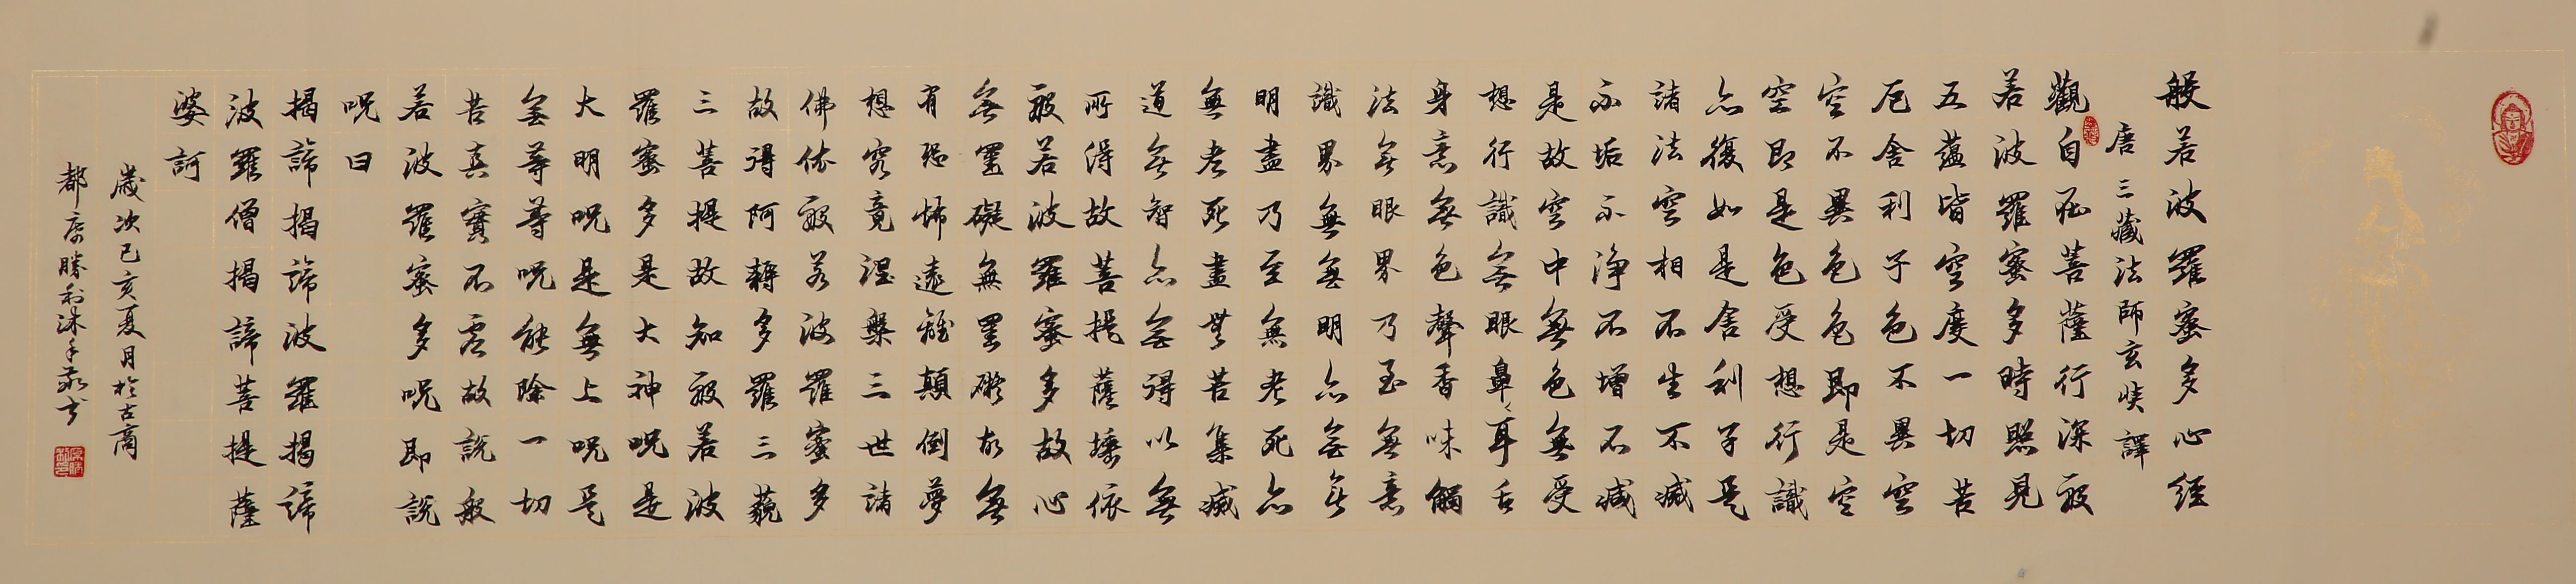 般若波羅蜜多心經
唐三藏法師玄奘譯
觀自在菩薩行深般
若波羅蜜多時照見
五蘊皆空度一切苦
厄舍利子色不異空
空不異色色即是空
空即是色受想行識
亦復如是舍利子是
諸法空相不生不滅
不垢不淨不增不減
是故空中無色無受
想行識無眼鼻耳舌
身意無色聲香味觸
法無眼界乃至無意
識界無無明亦無無
明盡乃至無老死亦
無老死盡無苦集滅
道無智亦無得以無
所得故菩提薩埵依
般若波羅蜜多故心
無罣礙無罣礙故無
有恐怖遠離顛倒夢
想究竟涅槃三世諸
佛依般若波羅蜜多
故得阿耨多羅三藐
三菩提故知般若波
羅蜜多是大神呪是
大明呪是無上呪是
無等等呪能除一切
苦真實不虛故說般
若波羅蜜多呪即說
呪曰
揭諦揭諦波羅揭諦
波羅僧揭諦菩提薩
婆訶
歲次己亥夏月於古商
都原勝利沐手敬書